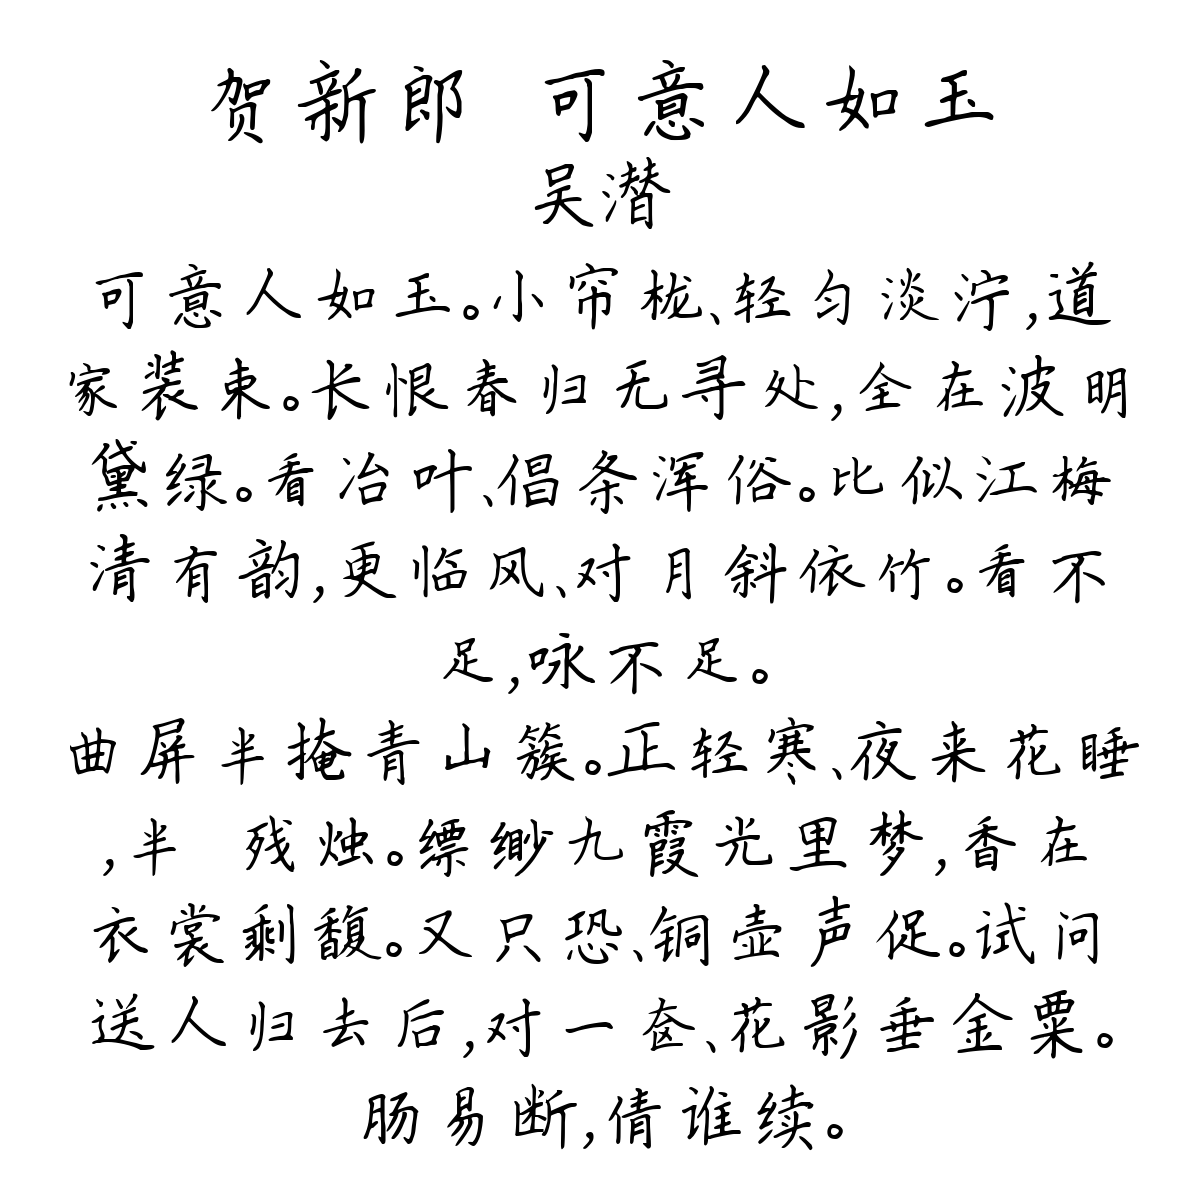 贺新郎 可意人如玉
吴潜
可意人如玉。小帘栊、轻匀淡泞,道
家装束。长恨春归无寻处,全在波明
黛绿。看冶叶、倡条浑俗。比似江梅
清有韵,更临风、对月斜依竹。看不
足,咏不足。
曲屏半掩青山簇。正轻寒、夜来花睡
,半 残烛。缥缈九霞光里梦,香在
衣裳剩馥。又只恐、铜壶声促。试问
送人归去后,对一奁、花影垂金粟。
肠易断,倩谁续。